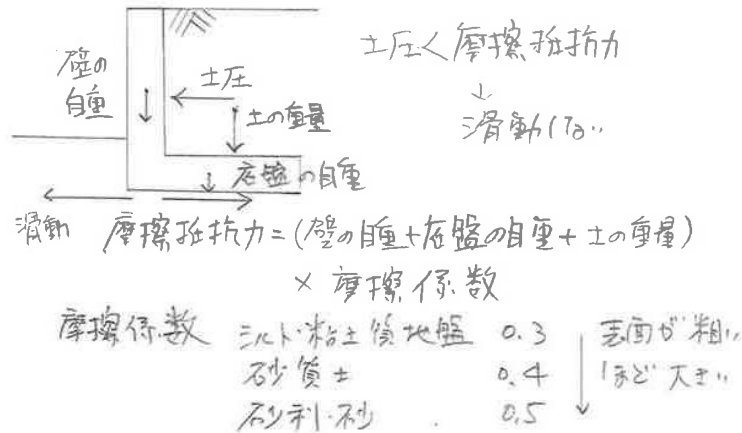 壁の
自重
土圧
土の重量
底盤の自重
土圧<摩擦抵抗力
↓
滑動しない
滑動
摩擦抵抗力=(壁の自重+底盤の自重+土の重量)
×摩擦係数
摩擦係数 シルト・粘土質地盤 0.3
砂質土 0.4
砂利・砂 0.5
表面が粗い
ほど大きい